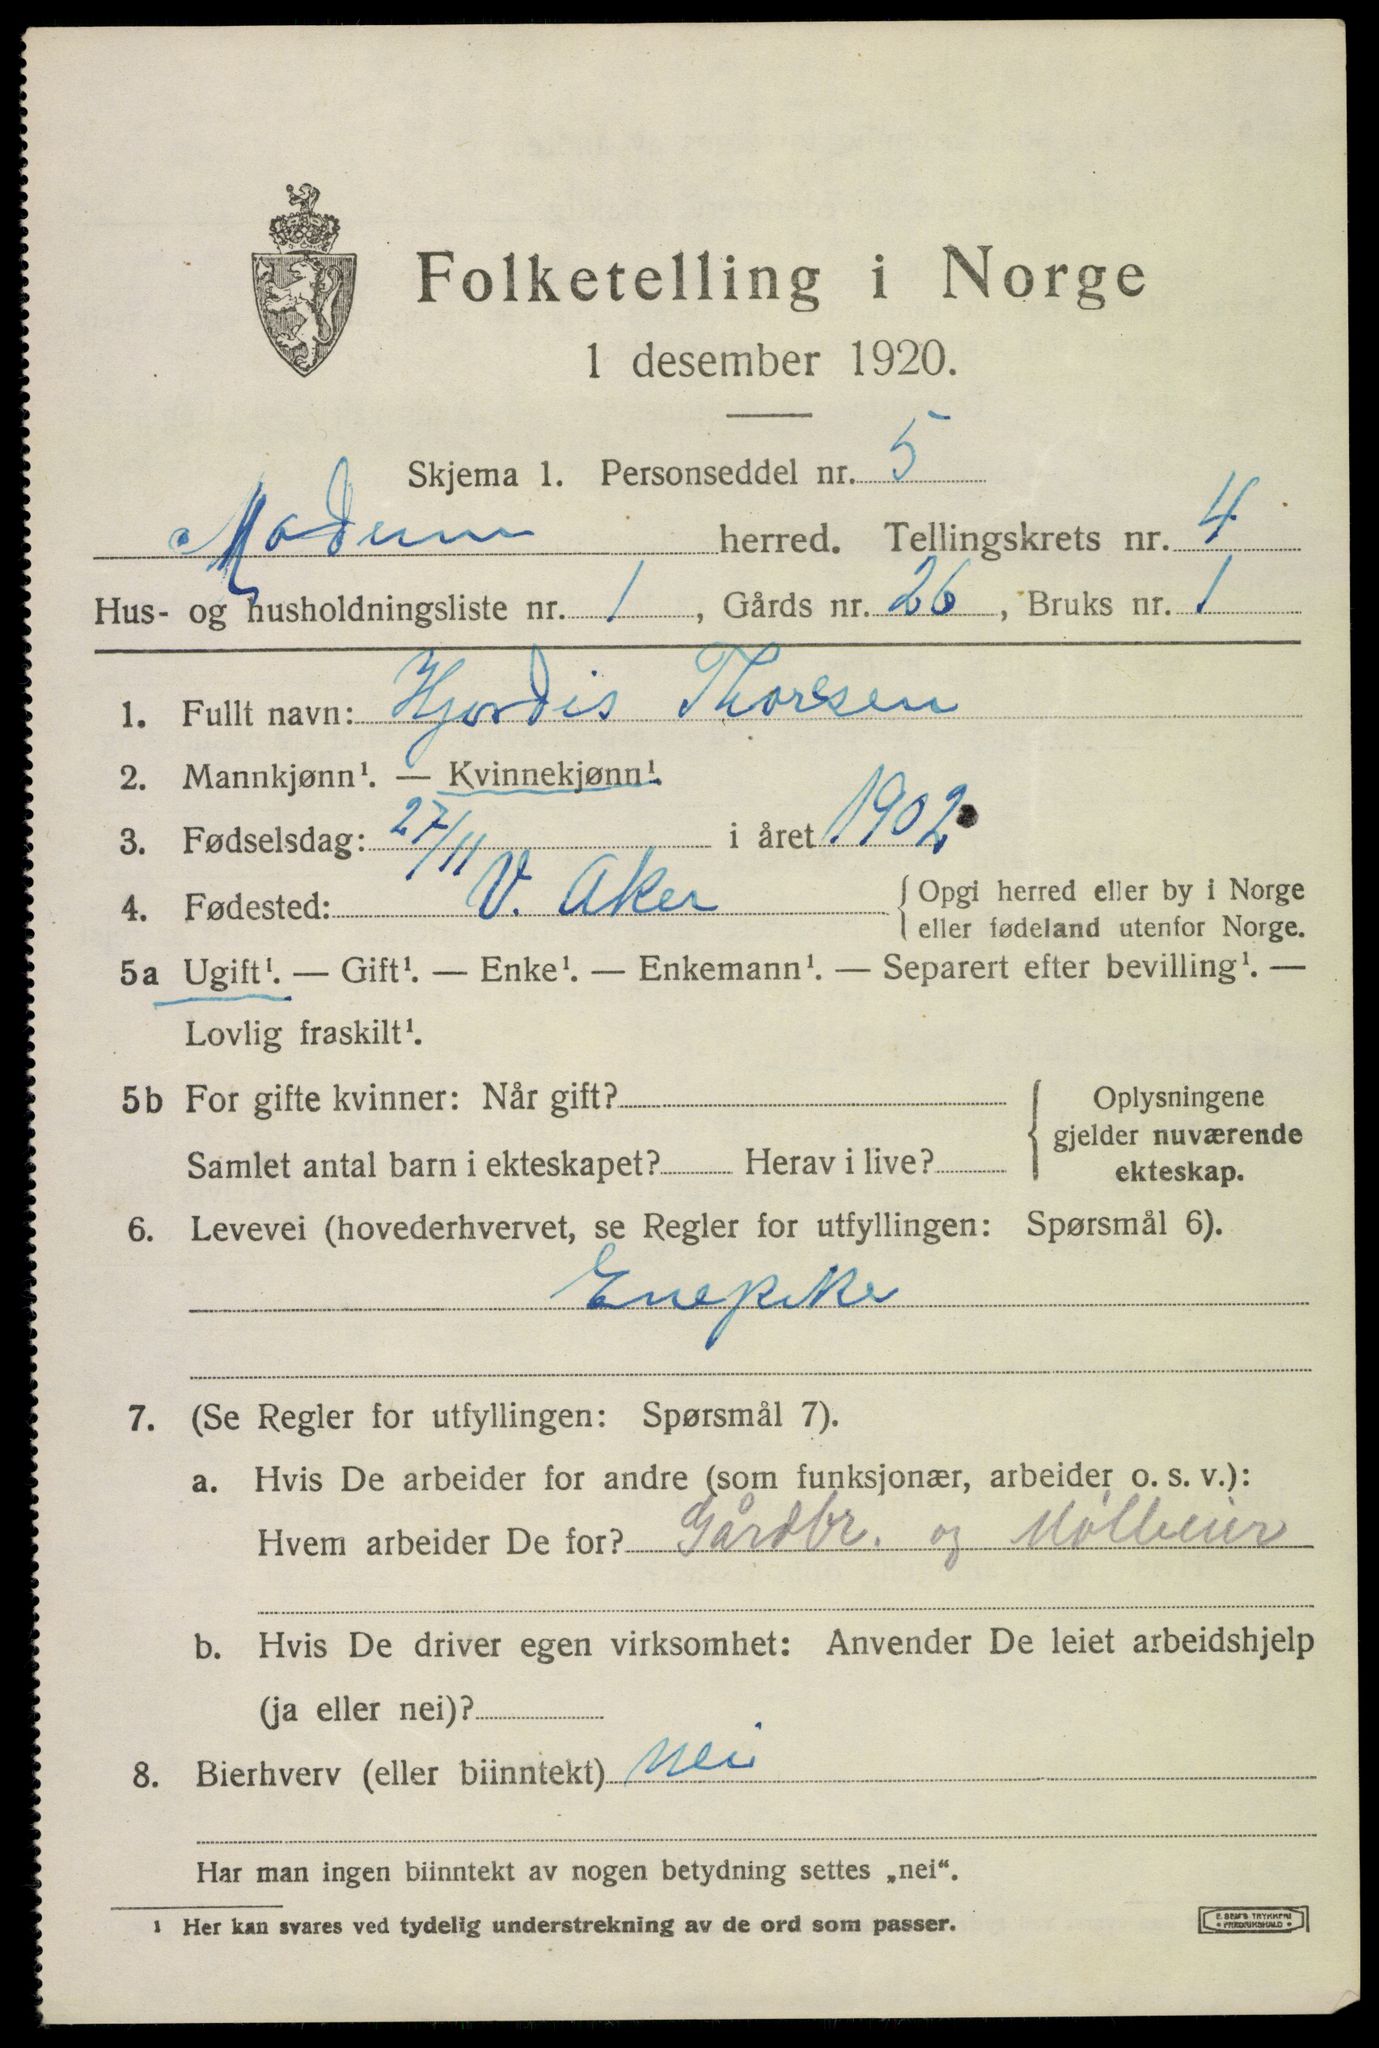 Folketelling i Norge
1 desember 1920.
Skjema 1. Personseddel nr. 5
Modum herred. Tellingskrets nr. 4
Hus- og husholdningsliste nr. 1, Gårds nr. 26, Bruks nr. 1
1. Fullt navn: Hjordis Thoresen
2. Mannkjønn¹. — Kvinnekjønn¹.
3. Fødselsdag: 27/11 i året 1902
4. Fødested: V. Aker { Opgi herred eller by i Norge
eller fødeland utenfor Norge.
5a Ugift¹. — Gift¹. — Enke¹. — Enkemann¹. — Separert efter bevilling¹. —
Lovlig fraskilt¹.
5b For gifte kvinner: Når gift? { Oplysningene
gjelder nuværende
Samlet antal barn i ekteskapet? Herav i live? ekteskap.
6. Levevei (hovederhvervet, se Regler for utfyllingen: Spørsmål 6).
Enepike
7. (Se Regler for utfyllingen: Spørsmål 7).
a. Hvis De arbeider for andre (som funksjonær, arbeider o. s. v.):
Hvem arbeider De for? Gårdbr. og Mölleier
b. Hvis De driver egen virksomhet: Anvender De leiet arbeidshjelp
(ja eller nei)?
8. Bierhverv (eller biinntekt) nei
Har man ingen biinntekt av nogen betydning settes „nei“.
¹ Her kan svares ved tydelig understrekning av de ord som passer.
E. SEM'S TRYKKERI
FREDRIKSHALD